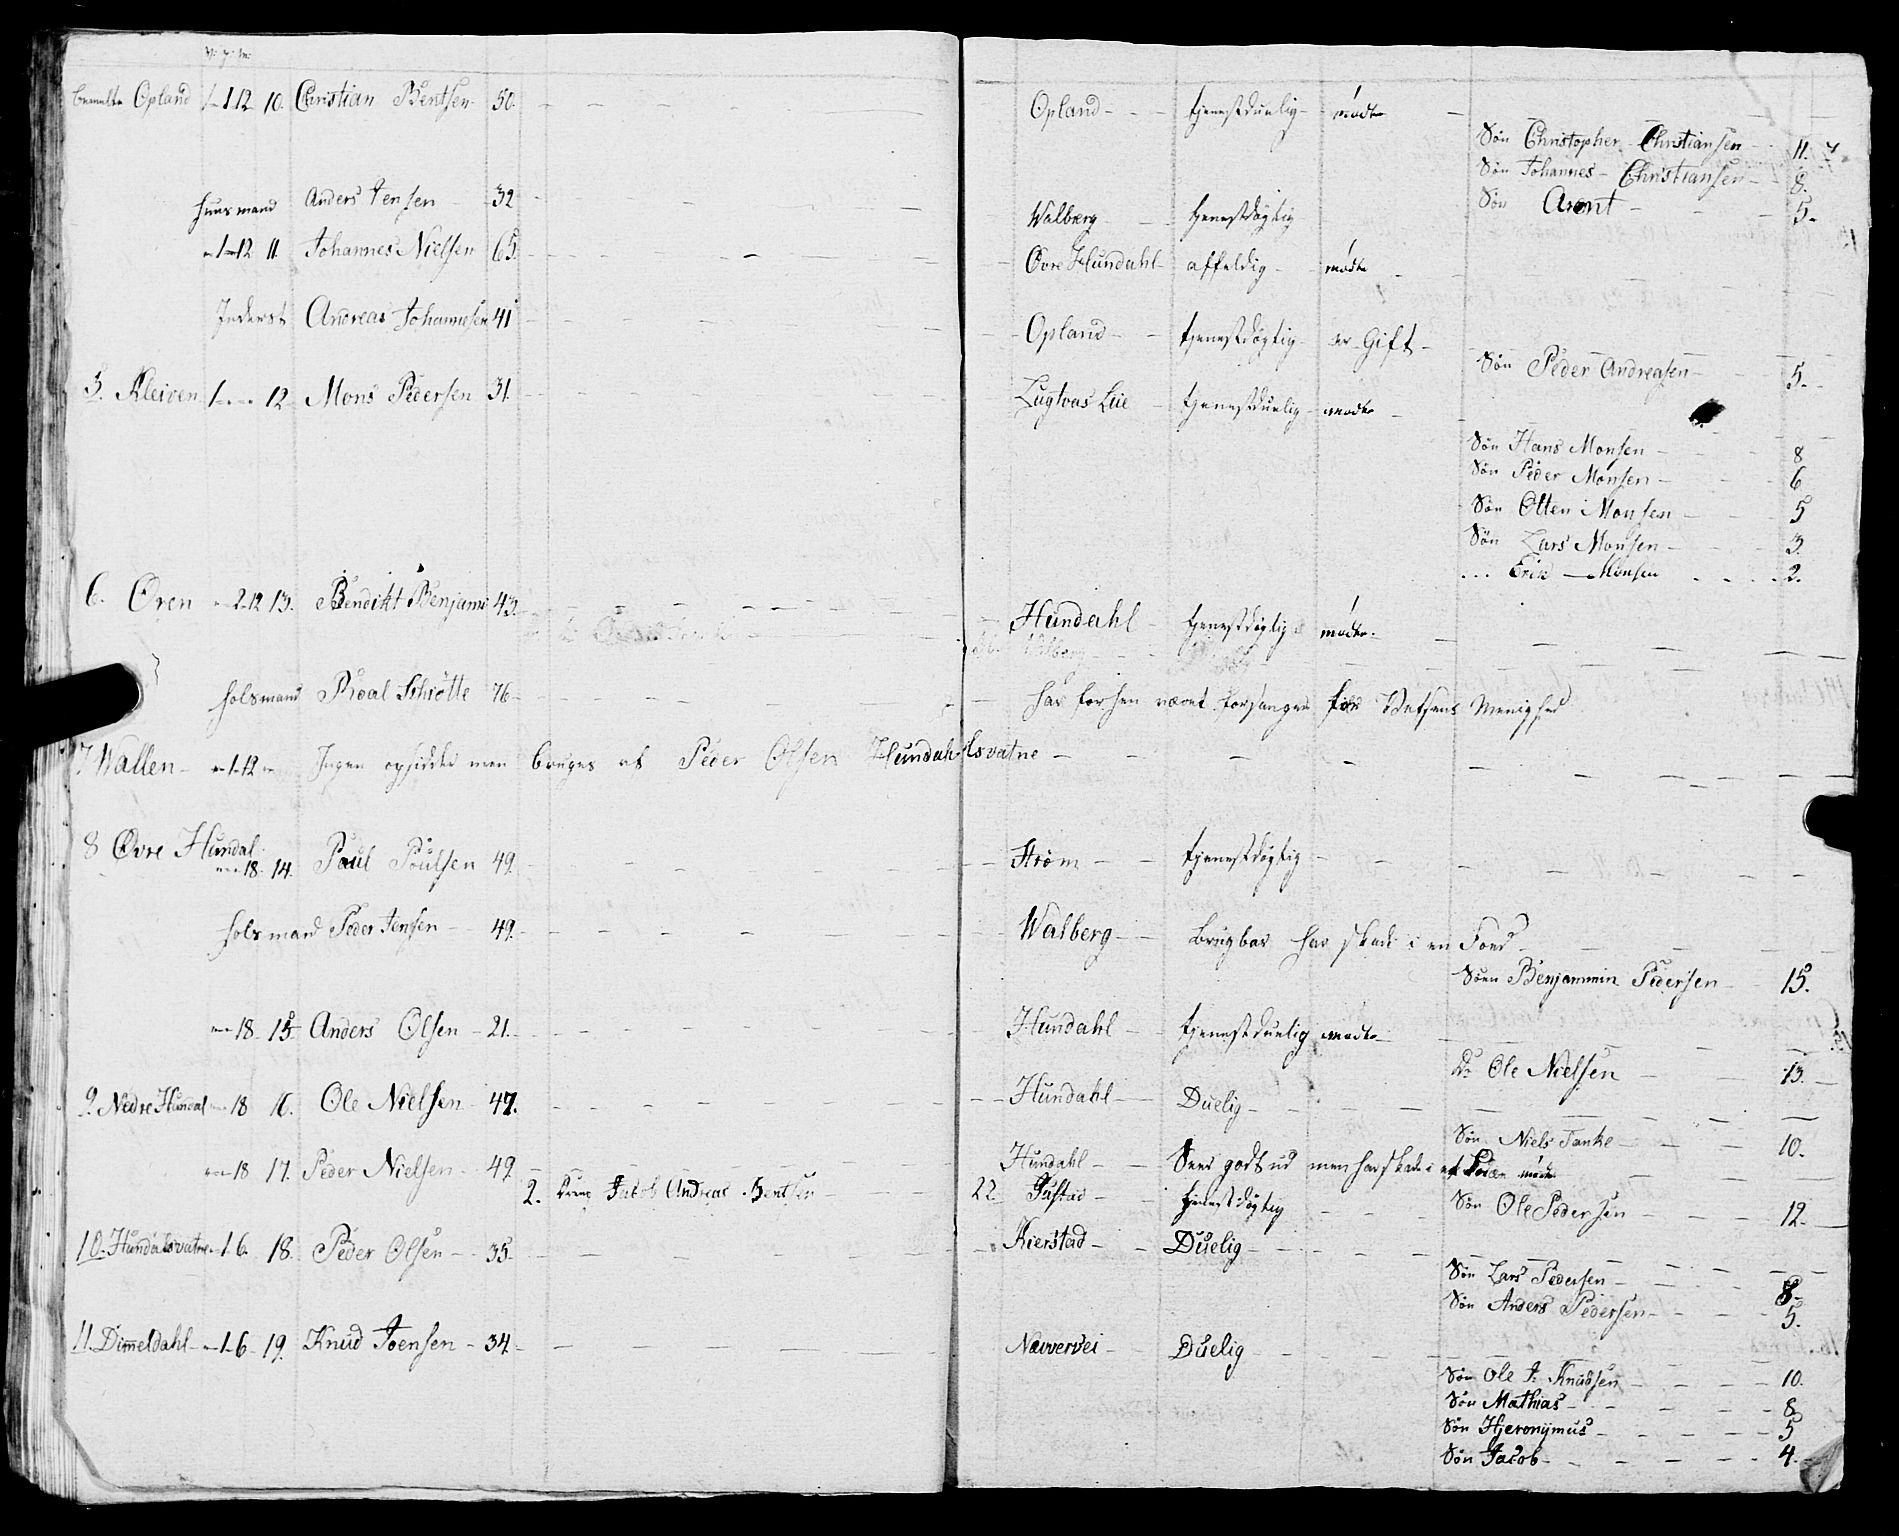 V: p: m:
bemelte Opland 1-12 10. Christian Bentsen 50. Opland tjenestduelig mødte
Søn Christopher Christiansen 11.
Søn Johannes Christiansen 8.
Søn Arent 5.
huusmand Anders Jensen 32 Walberg tjenestdøgtig
1-12 11. Johannes Nielsen 65. Øvre Hundahl affeldig mødte
Inderst Andreas Johannesen 41 Opland tjenestdøgtig er Gift
Søn Peder Andreasen 5.
5. Kleiven 1 12 Mons Pedersen 31. Lugtvas Lie tjenestduelig mødte
Søn Hans Monsen 8
Søn Peder Monsen 6
Søn Otten Monsen 5
Søn Lars Monsen 3.
... Erik Monsen 2.
6. Øren 2 12 13. Bendikt Benjami 43. Hundahl tjenestdøgtig mødte.
Walberg
holsmand Roal Schrøtte 76 har forhen været forsanger for Vefsens Menighed
7 Wallen 1-12 Ingen opsidder men bruges af Peder Olsen Hundahlsvatne
8 Øvre Hundal 18. 14. Paul Poulsen 49. Strøm tjenestdøgtig
holsmand Peder Jensen 49. Walberg brugbar har skade i en Foed
Søen Benjammin Pedersen 15.
18 15 Anders Olsen 21. Hundahl tjenestduelig mødte
Do Ole Nielsen 13.
9. Nedre Hundal 18 16. Ole Nielsen 47. Hundahl Duelig
Søn Niels Tanke 10.
18 17. Peder Nielsen 49. Hundahl Seer godt ud men har skade i et mødte
2. Dreng Jacob Andreas Bentsen 22 Pustad tjenestdøgtig
Søn Ole Pedersen 12.
10. Hundalsvatne 1 6. 18. Peder Olsen 35. Kierstad Duelig
Søn Lars Pedersen 8.
Søn Anders Pedersen 5.
11. Dimeldahl 1 6 19. Knud Joensen 34. Navvervei Duelig
Søn Ole J: Knudsen 10.
Søn Mathias 8
Søn Hjeronymus 5
Søn Jacob 4.